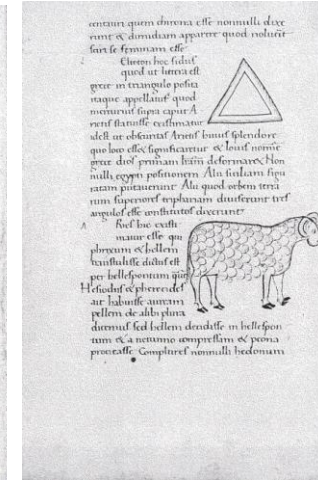 centauri quem chirona esse nonnulli dixe
runt & dimidiam apparere quod noluerit
se feminam esse
hoc sidus
quod ut littera est
grece in triangulo posita
itaque appellatur quod
mercurius supra caput A
rietis statuisse existimatur
idest ut obscuritas Arietis huius splendore
quo loco esset significaretur & Iouis nomine
grece dios primam deformaret Non
nulli egypti positionem Alii siciliam figu
ratam putauerunt Alii quod orbem terra
rum superiores diuiserunt tres
angulos esse constitutos dixerunt
A Ries hic existi
matur esse qui
phrixum & hellem
transtulisse dictus est
per hellespontum
Hesiodus & pherecides
ait habuisse auream
pellem de alibi plura
dicemus sed hellem decidisse in hellespon
tum & a neptuno compressam & peona
procreasse Complures nonnulli hedonum